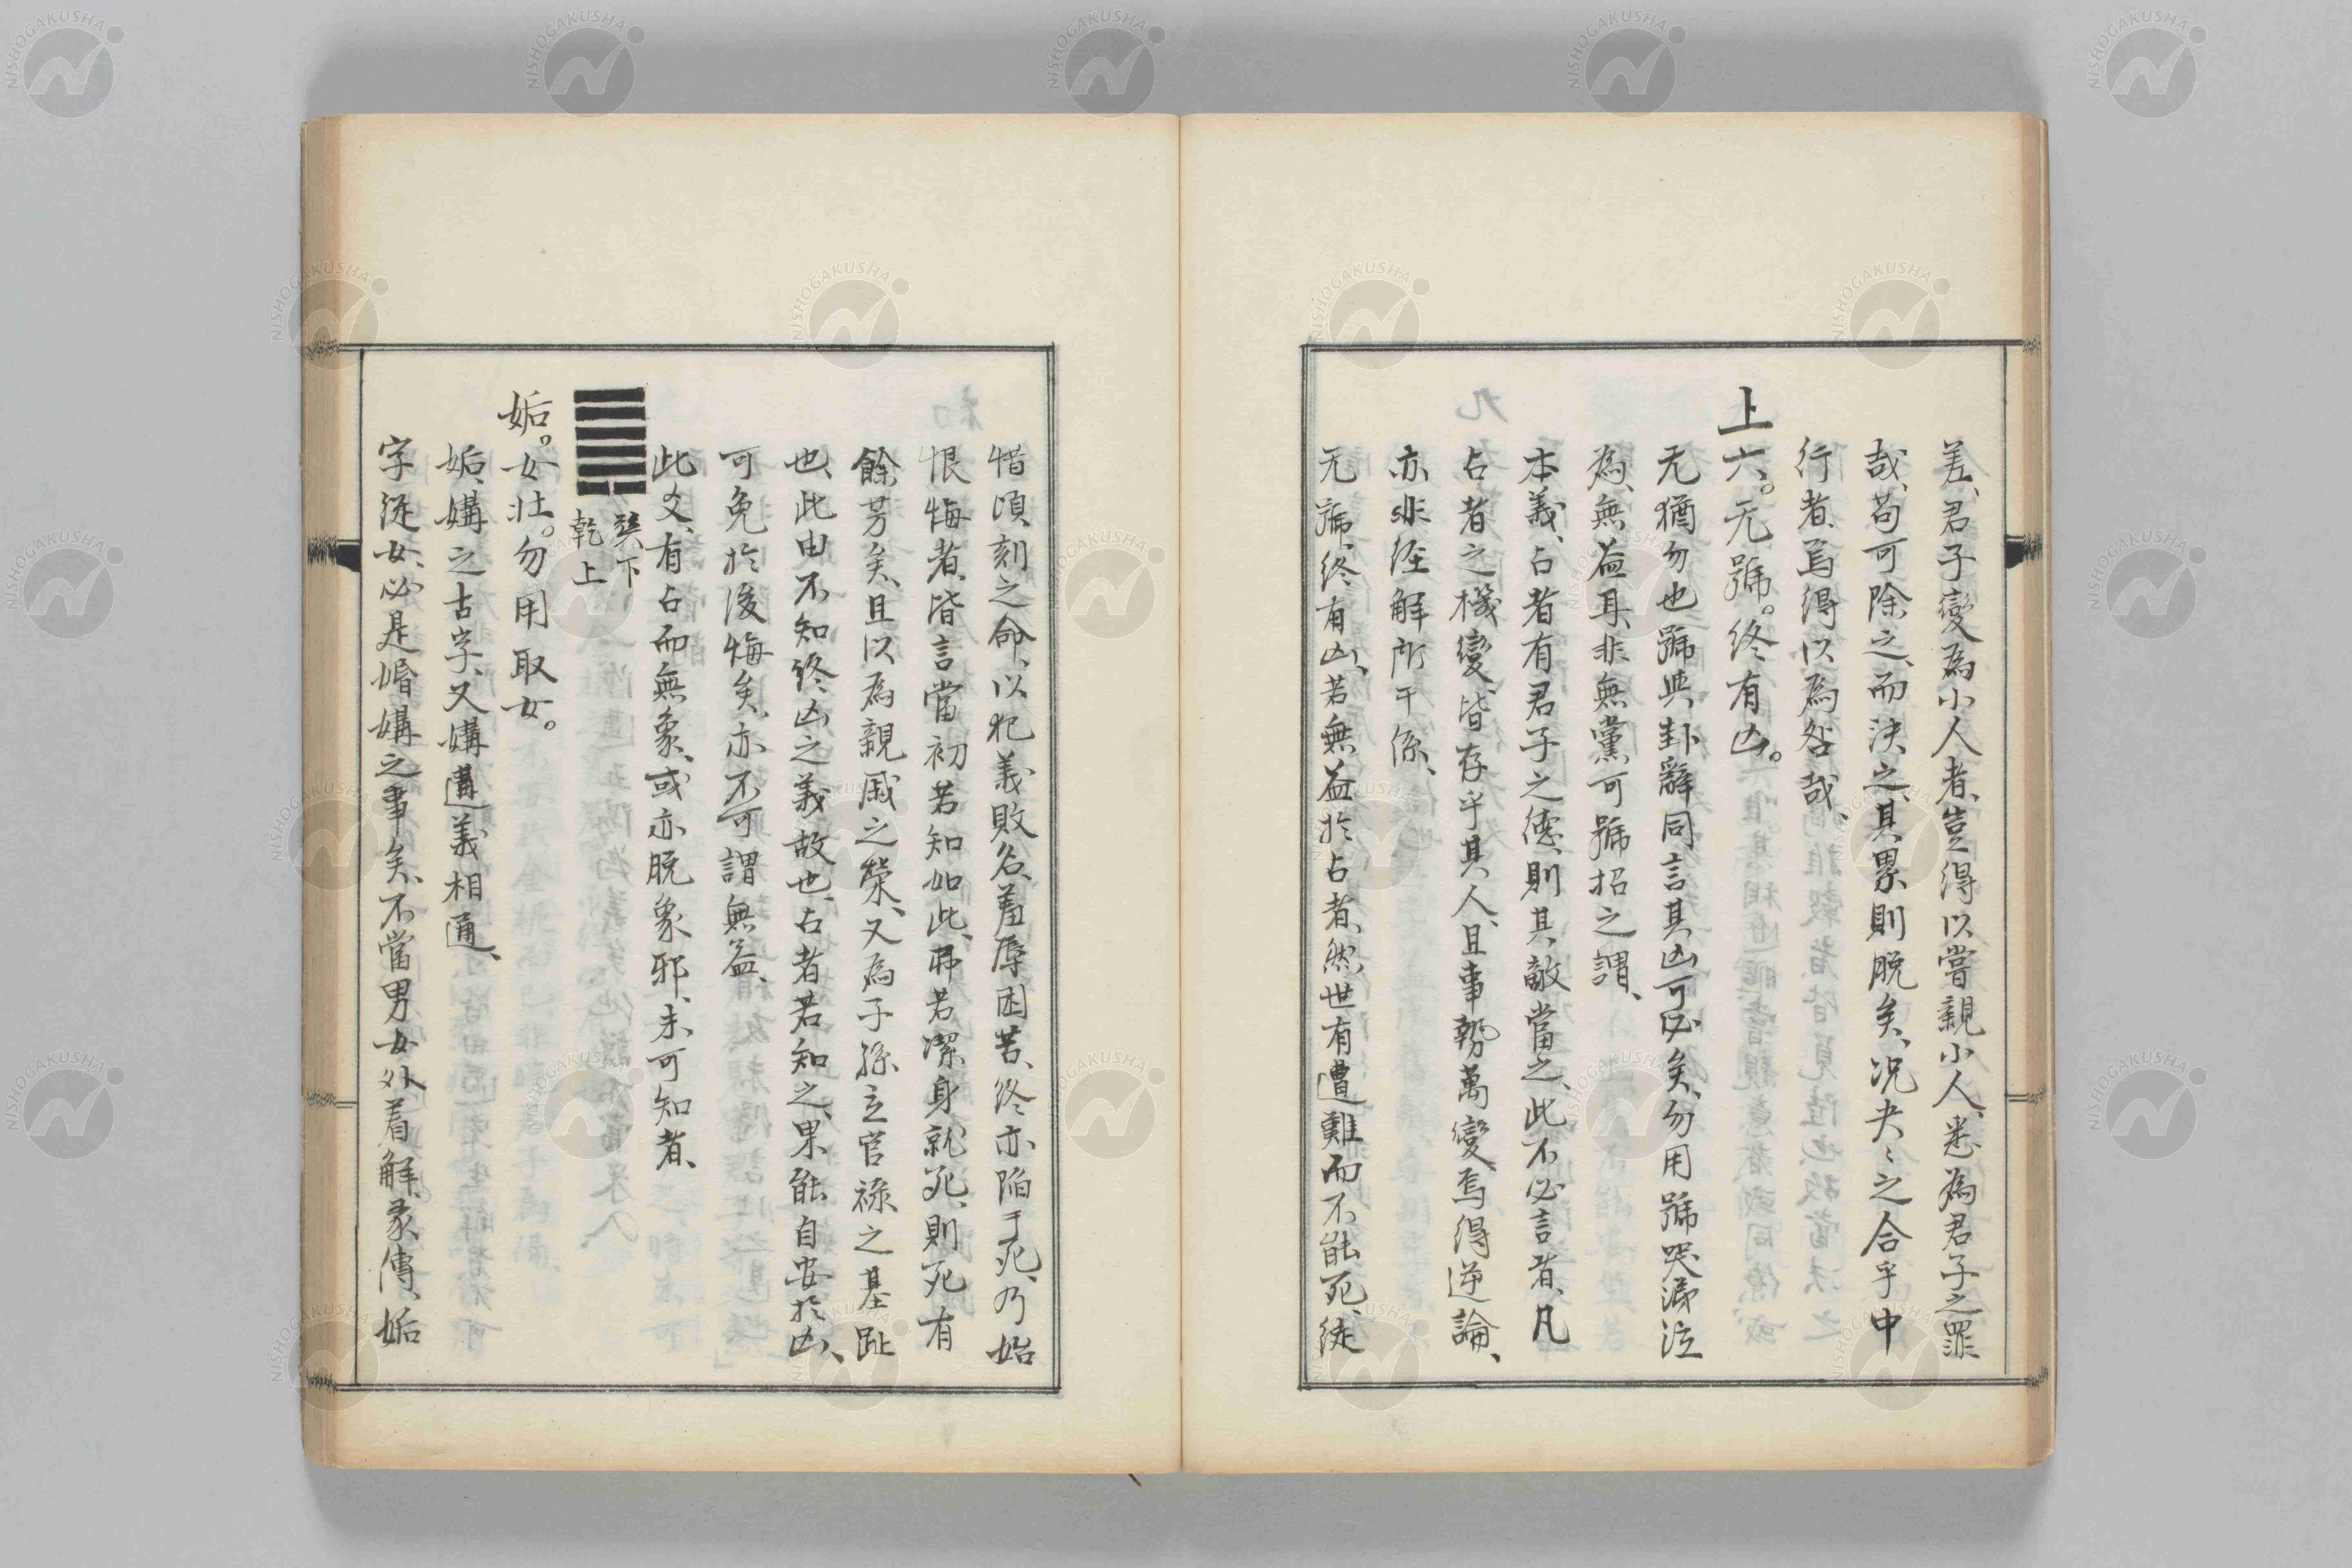 差、君子變為小人者、豈得以嘗親小人、悉為君子之罪
哉、苟可除之、而決之、其累則脫矣、况夬〻之合乎中
行者、焉得以為咎哉、
上六。无號。終有凶。
无猶勿也、號與卦辭同、言其凶可必矣、勿用號哭涕泣
為、無益耳、非無黨可號招之謂、
本義、占者有君子之德、則其敵當之、此不必言者、凡
占者之機變、皆存乎其人、且事勢萬變、焉得逆論、
亦非經解所干係、
无號、終有凶、若無益於占者、然世有遭難而不能死、徒
惜頃刻之命、以犯義敗名、羞辱困苦、終亦陷于死、乃始
恨悔者、皆言當初若知如此、苐若潔身就死、則死有
餘芳矣、且以為親戚之榮、又為子孫立官祿之基趾
也、此由不知終凶之義故也、占者若知之、果能自安於凶、
可免於後悔矣、亦不可謂無益、
此爻、有占而無象、或亦脫象邪、未可知者、
巽下
乾上
姤。女壯。勿用取女。
姤、媾之古字、又媾遘義相通、
字從女、必是婚媾之事矣、不當男女外着解、彖傳、姤